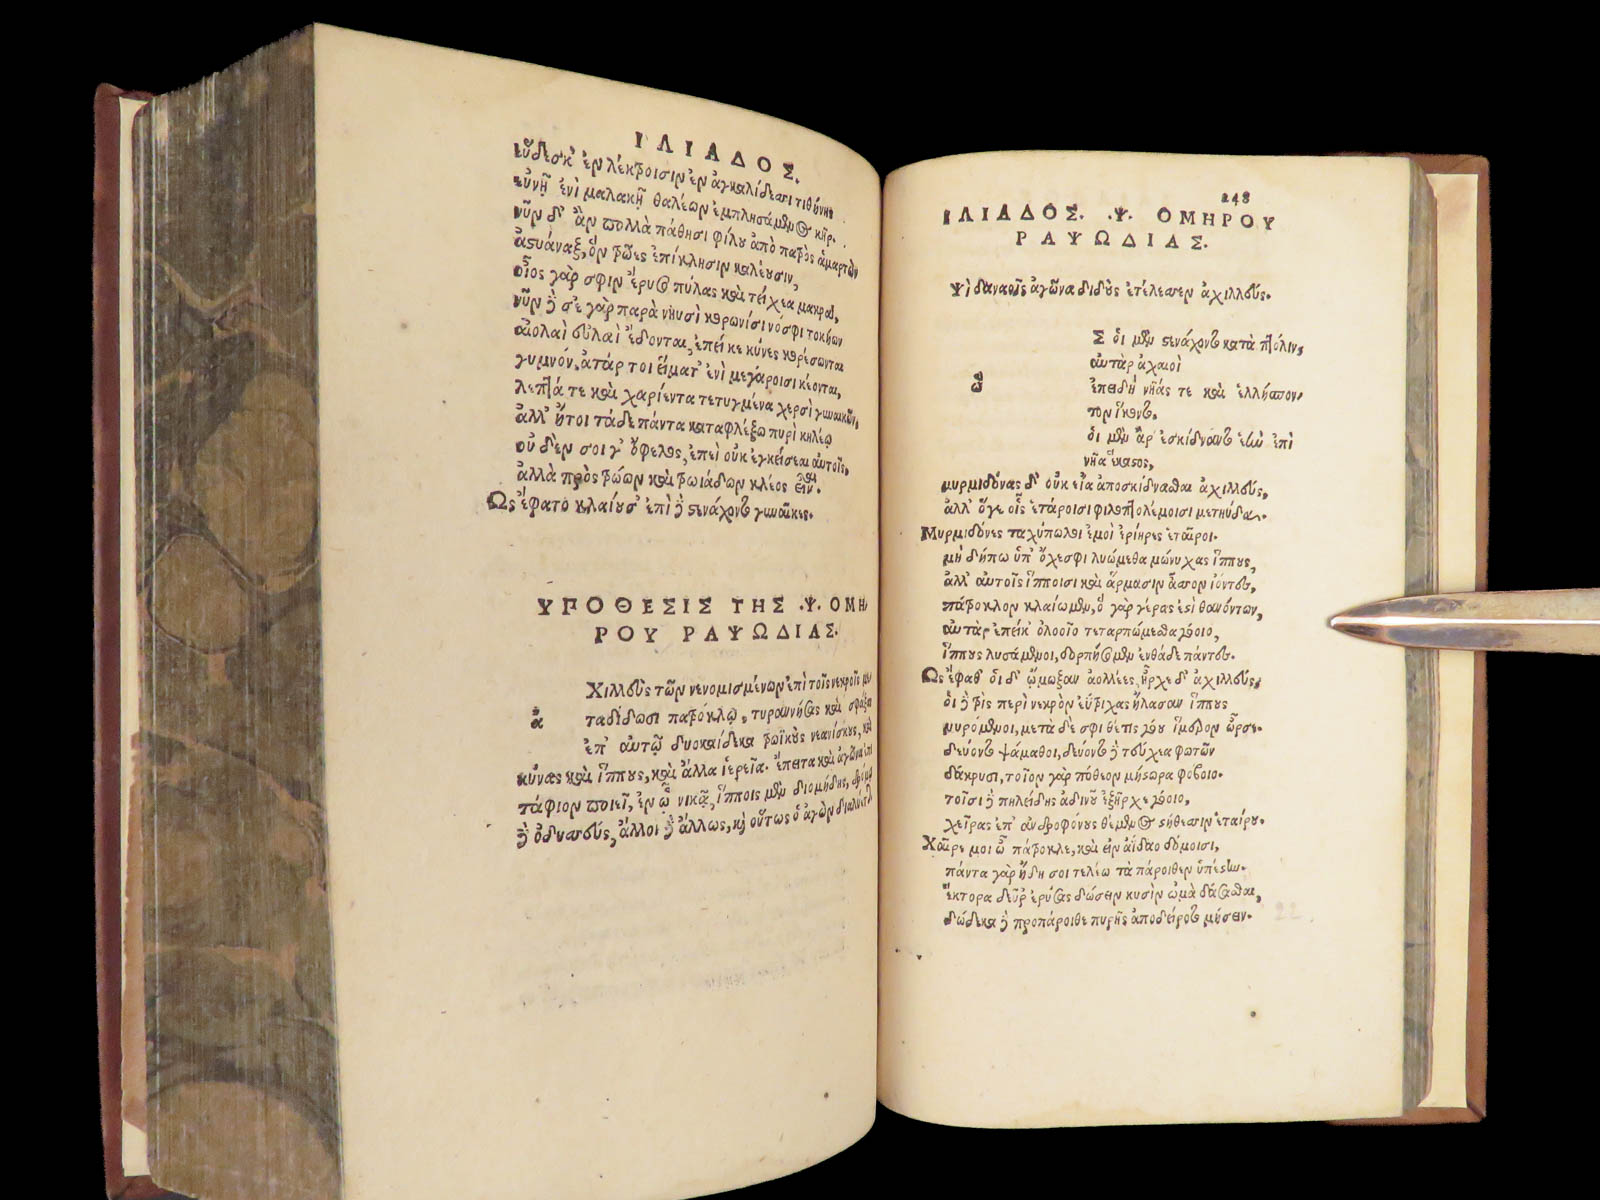 ΙΛΙΑΔΟΣ.
εὕδεσκ' ἐν λέκτροισιν ἐν ἀγκαλίδεσσι τιθήνης
εὐνῇ ἐνὶ μαλακῇ θαλέων ἐμπλησάμενος κῆρ.
νῦν δ' ἂν πολλὰ πάθησι φίλου ἀπὸ πατρὸς ἁμαρτὼν
ἀστυάναξ, ὃν τρῶες ἐπίκλησιν καλέουσιν,
οἶος γὰρ σφιν ἔρυσο πύλας καὶ τείχεα μακρά,
νῦν δὲ σὲ γὰρ παρὰ νηυσὶ κορωνίσι νόσφι τοκήων
αἰόλαι εὐλαὶ ἔδονται, ἐπεί κε κύνες κορέσωνται
γυμνόν, ἀτάρ τοι εἵματ' ἐνὶ μεγάροισι κέονται,
λεπτά τε καὶ χαρίεντα τετυγμένα χερσὶ γυναικῶν,
ἀλλ' ἤτοι τάδε πάντα καταφλέξω πυρὶ κηλέῳ
οὐδὲν σοί γ' ὄφελος, ἐπεὶ οὐκ ἐγκείσεαι αὐτοῖς,
ἀλλὰ πρὸς τρώων καὶ τρωιάδων κλέος εἶναι.
Ως ἔφατο κλαίουσ' ἐπὶ δὲ στενάχοντο γυναῖκες.
ΥΠΟΘΕΣΙΣ ΤΗΣ .Ψ. ΟΜΗ
ΡΟΥ ΡΑΨΩΔΙΑΣ.
ἀ
Χιλλεὺς τῶν νενομισμένων ἐπὶ τοῖς νεκροῖς με
ταδίδωσι πατρόκλῳ, τυραννήσας καὶ σφάξας
ἐπ' αὐτῷ δυοκαίδεκα τρωϊκοὺς νεανίσκους, καὶ
κύνας καὶ ἵππους, καὶ ἄλλα ἱερεῖα. ἔπειτα καὶ ἀγῶνα ἐπι
τάφιον ποιεῖ, ἐν ᾧ νικᾷ, ἵπποις μὲν διομήδης,
δὲ ὀδυσσεύς, ἄλλοι δὲ ἄλλως, καὶ οὕτως ὁ ἀγὼν
248
ΙΛΙΑΔΟΣ. .Ψ. ΟΜΗΡΟΥ
ΡΑΨΩΔΙΑΣ.
Ψὶ δαναοῖς ἀγῶνα διδοὺς ἐτέλεσσεν ἀχιλλεύς.
ὣ
Σ ὁι μὲν στενάχοντο κατὰ πτόλιν,
αὐτὰρ ἀχαιοὶ
ἐπειδὴ νῆάς τε καὶ ἑλλήσπον
τον ἵκοντο,
ὁι μὲν ἂρ ἐσκίδναντο ἑὴν ἐπὶ
νῆα ἕκαστος,
μυρμιδόνας δ' οὐκ εἴα ἀποσκίδνασθαι ἀχιλλεύς,
ἀλλ' ὅγε οἷς ἑτάροισι φιλοπτολέμοισι μετηύδα.
Μυρμιδόνες ταχύπωλοι ἐμοὶ ἐρίηρες ἑταῖροι.
μὴ δήπω ὑπ' ὄχεσφι λυώμεθα μώνυχας ἵππους,
ἀλλ' αὐτοῖς ἵπποισι καὶ ἅρμασιν ἆσσον ἰόντες,
πάτροκλον κλαίωμεν, ὃ γὰρ γέρας ἐστὶ θανόντων,
αὐτὰρ ἐπεὶκ' ὀλοοῖο τεταρπώμεσθα γόοιο,
ἵππους λυσάμενοι, δορπήσομεν ἐνθάδε πάντες.
Ως ἔφαθ' ὁι δ' ᾤμωξαν ἀολλέες, ἦρχε δ' ἀχιλλεύς,
ὁι δὲ τρὶς περὶ νεκρὸν ἐΰτριχας ἤλασαν ἵππους
μυρόμενοι, μετὰ δὲ σφι θέτις γόου ἵμερον ὦρσε.
δεύοντο ψάμαθοι, δεύοντο δὲ τεύχεα φωτῶν
δάκρυσι, τοῖον γὰρ πόθεον μήστωρα φόβοιο.
τοῖσι δὲ πηλείδης ἁδινοῦ ἐξῆρχε γόοιο,
χεῖρας ἐπ' ἀνδροφόνους θέμενος στήθεσσιν ἑταίρου.
Χαῖρέ μοι ὦ πάτροκλε, καὶ εἰν ἀΐδαο δόμοισι,
πάντα γὰρ ἤδη σοι τελέω τὰ πάροιθεν ὑπέστην.
ἕκτορα δεῦρ' ἐρύσας δώσειν κυσὶν ὠμὰ δάσασθαι,
δώδεκα δὲ προπάροιθε πυρῆς ἀποδειροτομήσειν.
22.